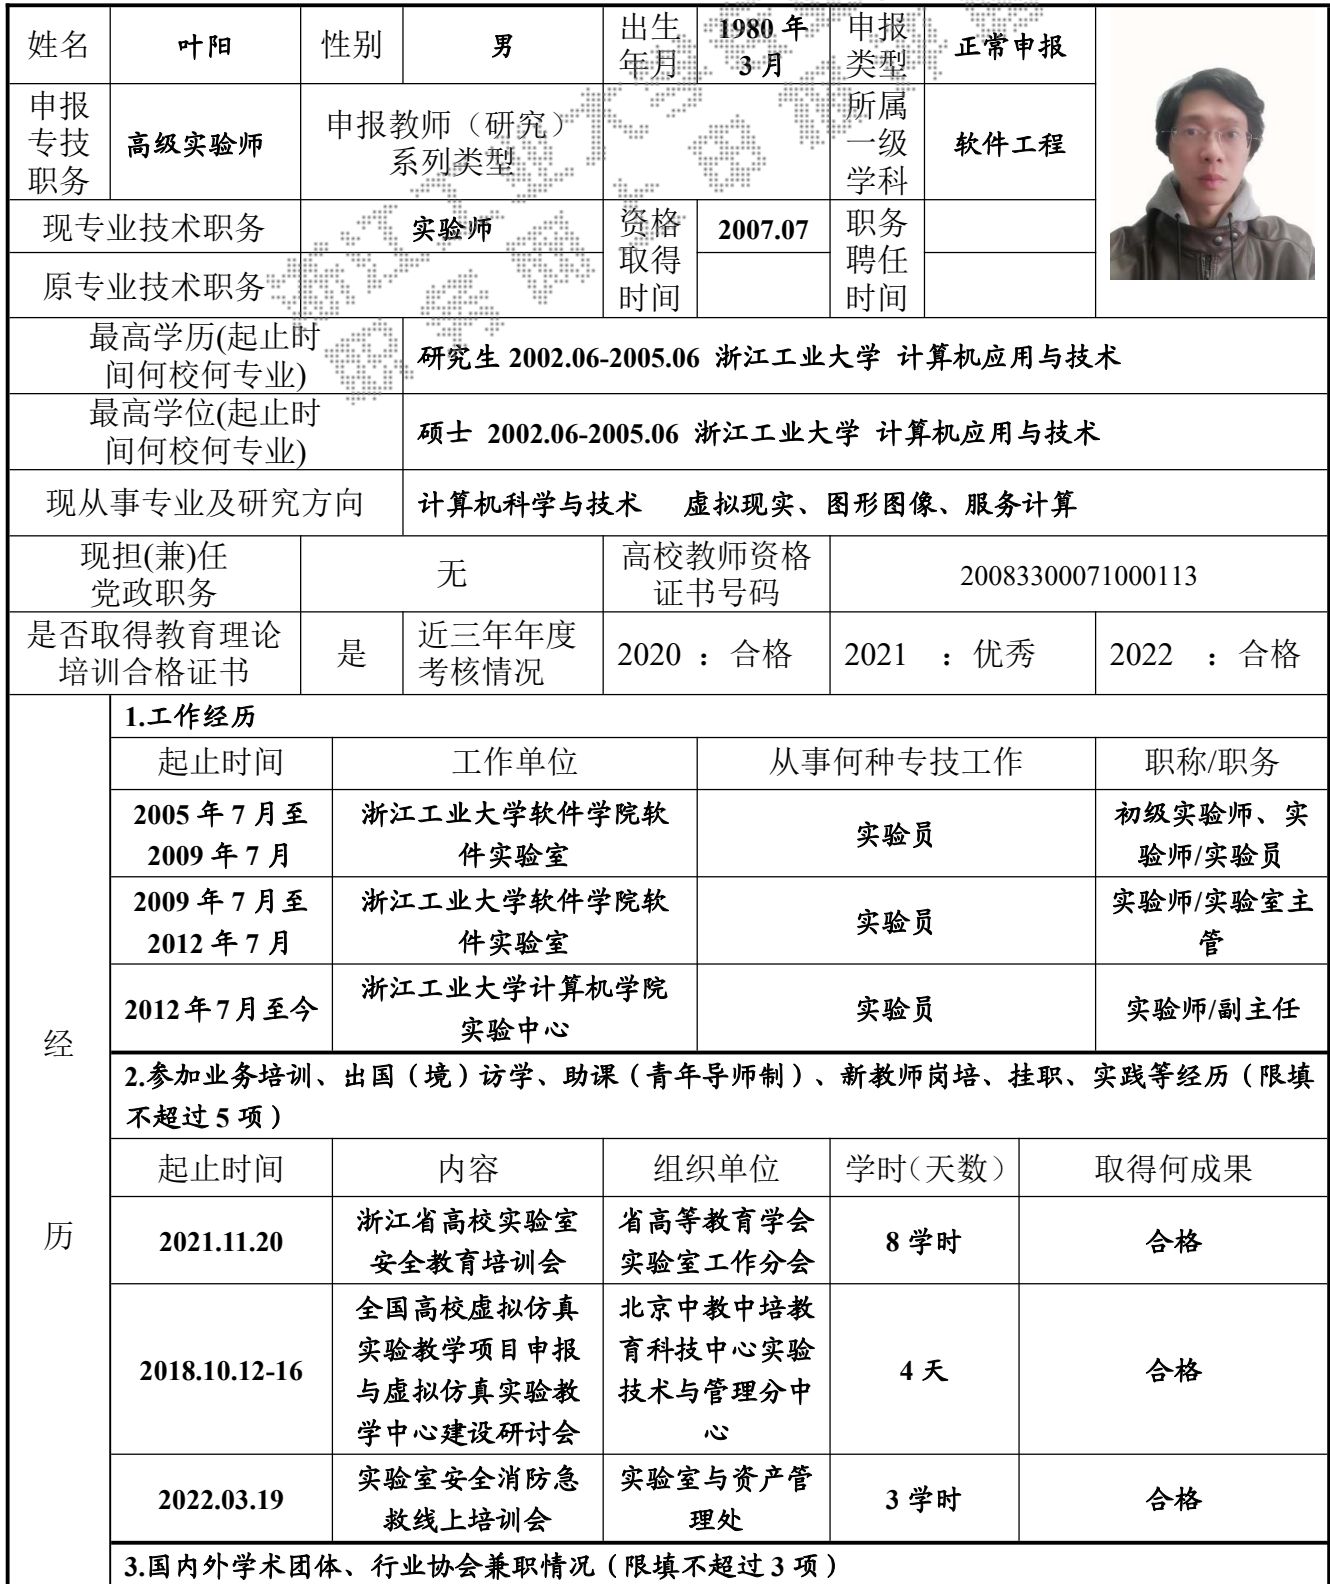 姓名 叶阳 性别 男 出生年月 1980年3月 申报类型 正常申报
申报专技职务 高级实验师 申报教师（研究）系列类型 所属一级学科 软件工程
现专业技术职务 实验师 资格取得时间 2007.07 职务聘任时间
原专业技术职务
最高学历(起止时间何校何专业) 研究生 2002.06-2005.06 浙江工业大学 计算机应用与技术
最高学位(起止时间何校何专业) 硕士 2002.06-2005.06 浙江工业大学 计算机应用与技术
现从事专业及研究方向 计算机科学与技术 虚拟现实、图形图像、服务计算
现担(兼)任党政职务 无 高校教师资格证书号码 20083300071000113
是否取得教育理论培训合格证书 是 近三年年度考核情况 2020：合格 2021：优秀 2022：合格
经历
1.工作经历
起止时间 工作单位 从事何种专技工作 职称/职务
2005年7月至2009年7月 浙江工业大学软件学院软件实验室 实验员 初级实验师、实验师/实验员
2009年7月至2012年7月 浙江工业大学软件学院软件实验室 实验员 实验师/实验室主管
2012年7月至今 浙江工业大学计算机学院实验中心 实验员 实验师/副主任
2.参加业务培训、出国（境）访学、助课（青年导师制）、新教师岗培、挂职、实践等经历（限填
不超过5项）
起止时间 内容 组织单位 学时（天数） 取得何成果
2021.11.20 浙江省高校实验室安全教育培训会 省高等教育学会实验室工作分会 8学时 合格
2018.10.12-16 全国高校虚拟仿真实验教学项目申报与虚拟仿真实验教学中心建设研讨会 北京中教中培教育科技中心实验技术与管理分中心 4天 合格
2022.03.19 实验室安全消防急救线上培训会 实验室与资产管理处 3学时 合格
3.国内外学术团体、行业协会兼职情况（限填不超过3项）